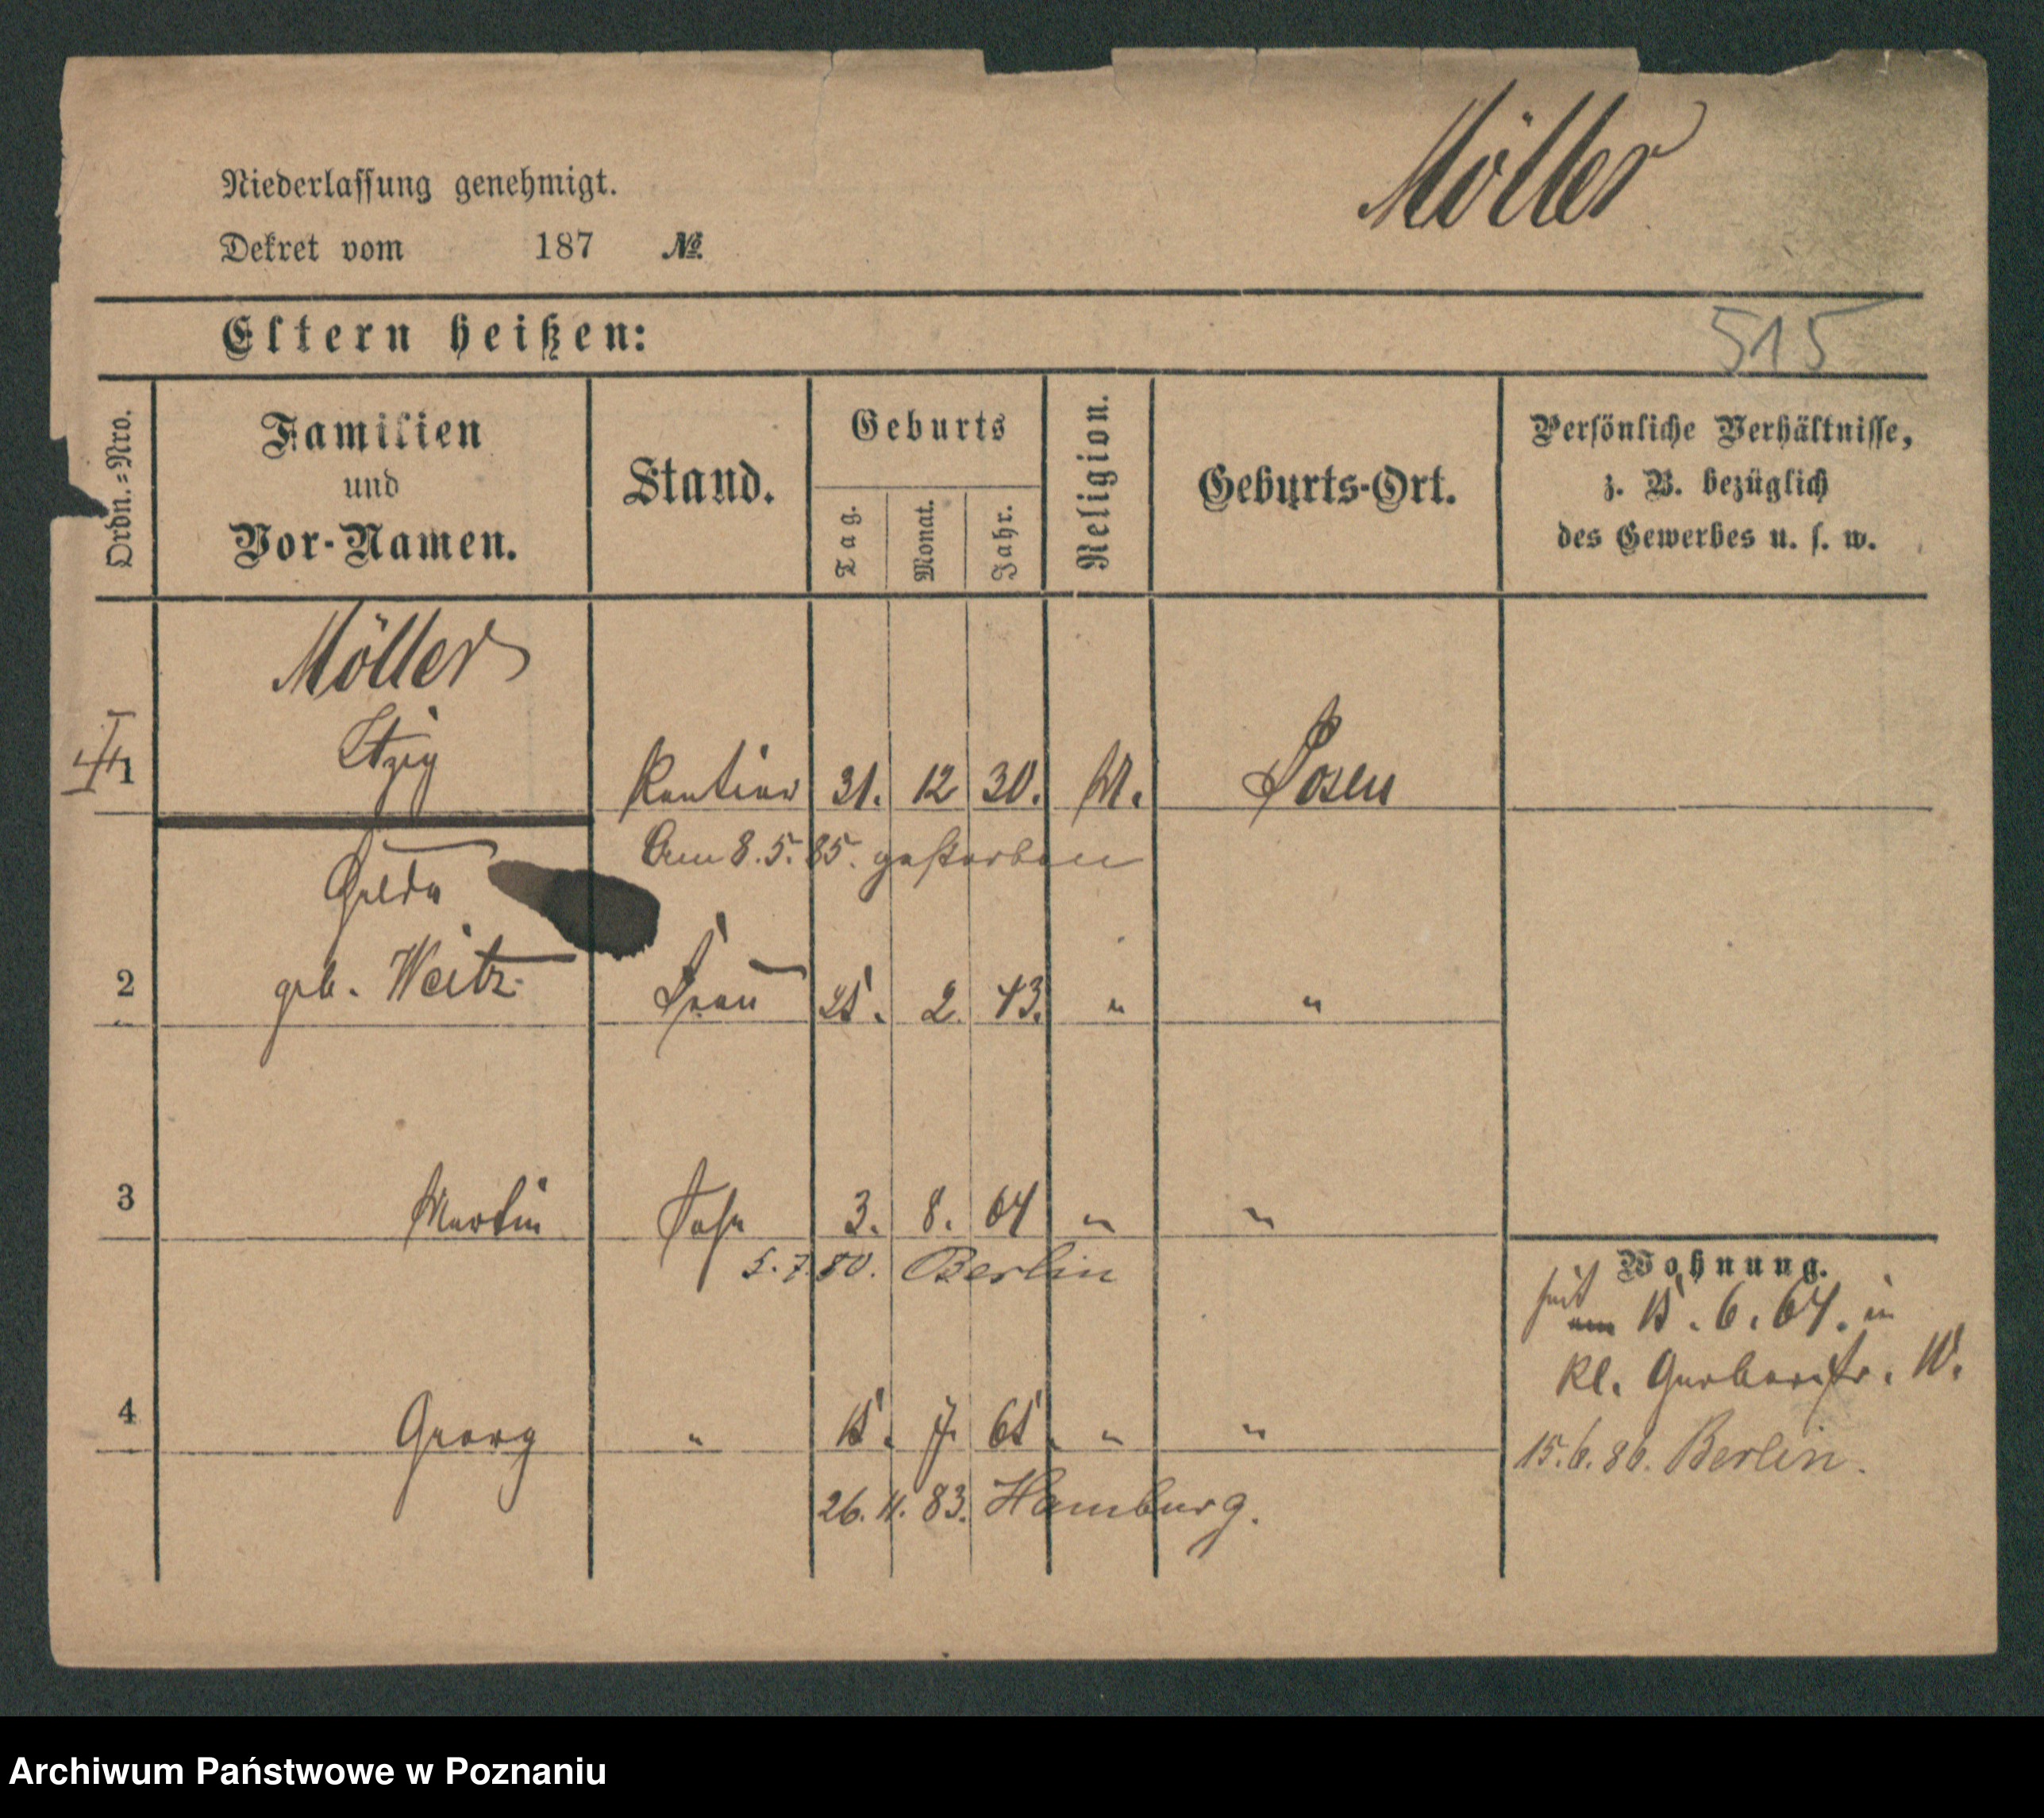 Möller
Niederlassung genehmigt.
Dekret vom 187 №
Eltern heißen:
515
Ordn.-Nro.
Familien
und
Vor-Namen.
Stand.
Geburts
Tag.
Monat.
Jahr.
Religion.
Geburts-Ort.
Persönliche Verhältnisse,
z. B. bezüglich
des Gewerbes u. s. w.
Möller
1 Itzig Rentier 31. 12 30. M. Posen
Am 8.5.85. gestorben
Hulda
2 geb. Weitz Frau 25. 2. 43. " "
3 Martin Sohn 3. 8. 64 " "
5.7.80. Berlin
Wohnung.
seit
am 15. 6. 64. in
Kl. Gerberstr. 10.
4 Georg " 15. 7. 65. " "
15.6.86. Berlin.
26.11.83. Hamburg.
Archiwum Państwowe w Poznaniu